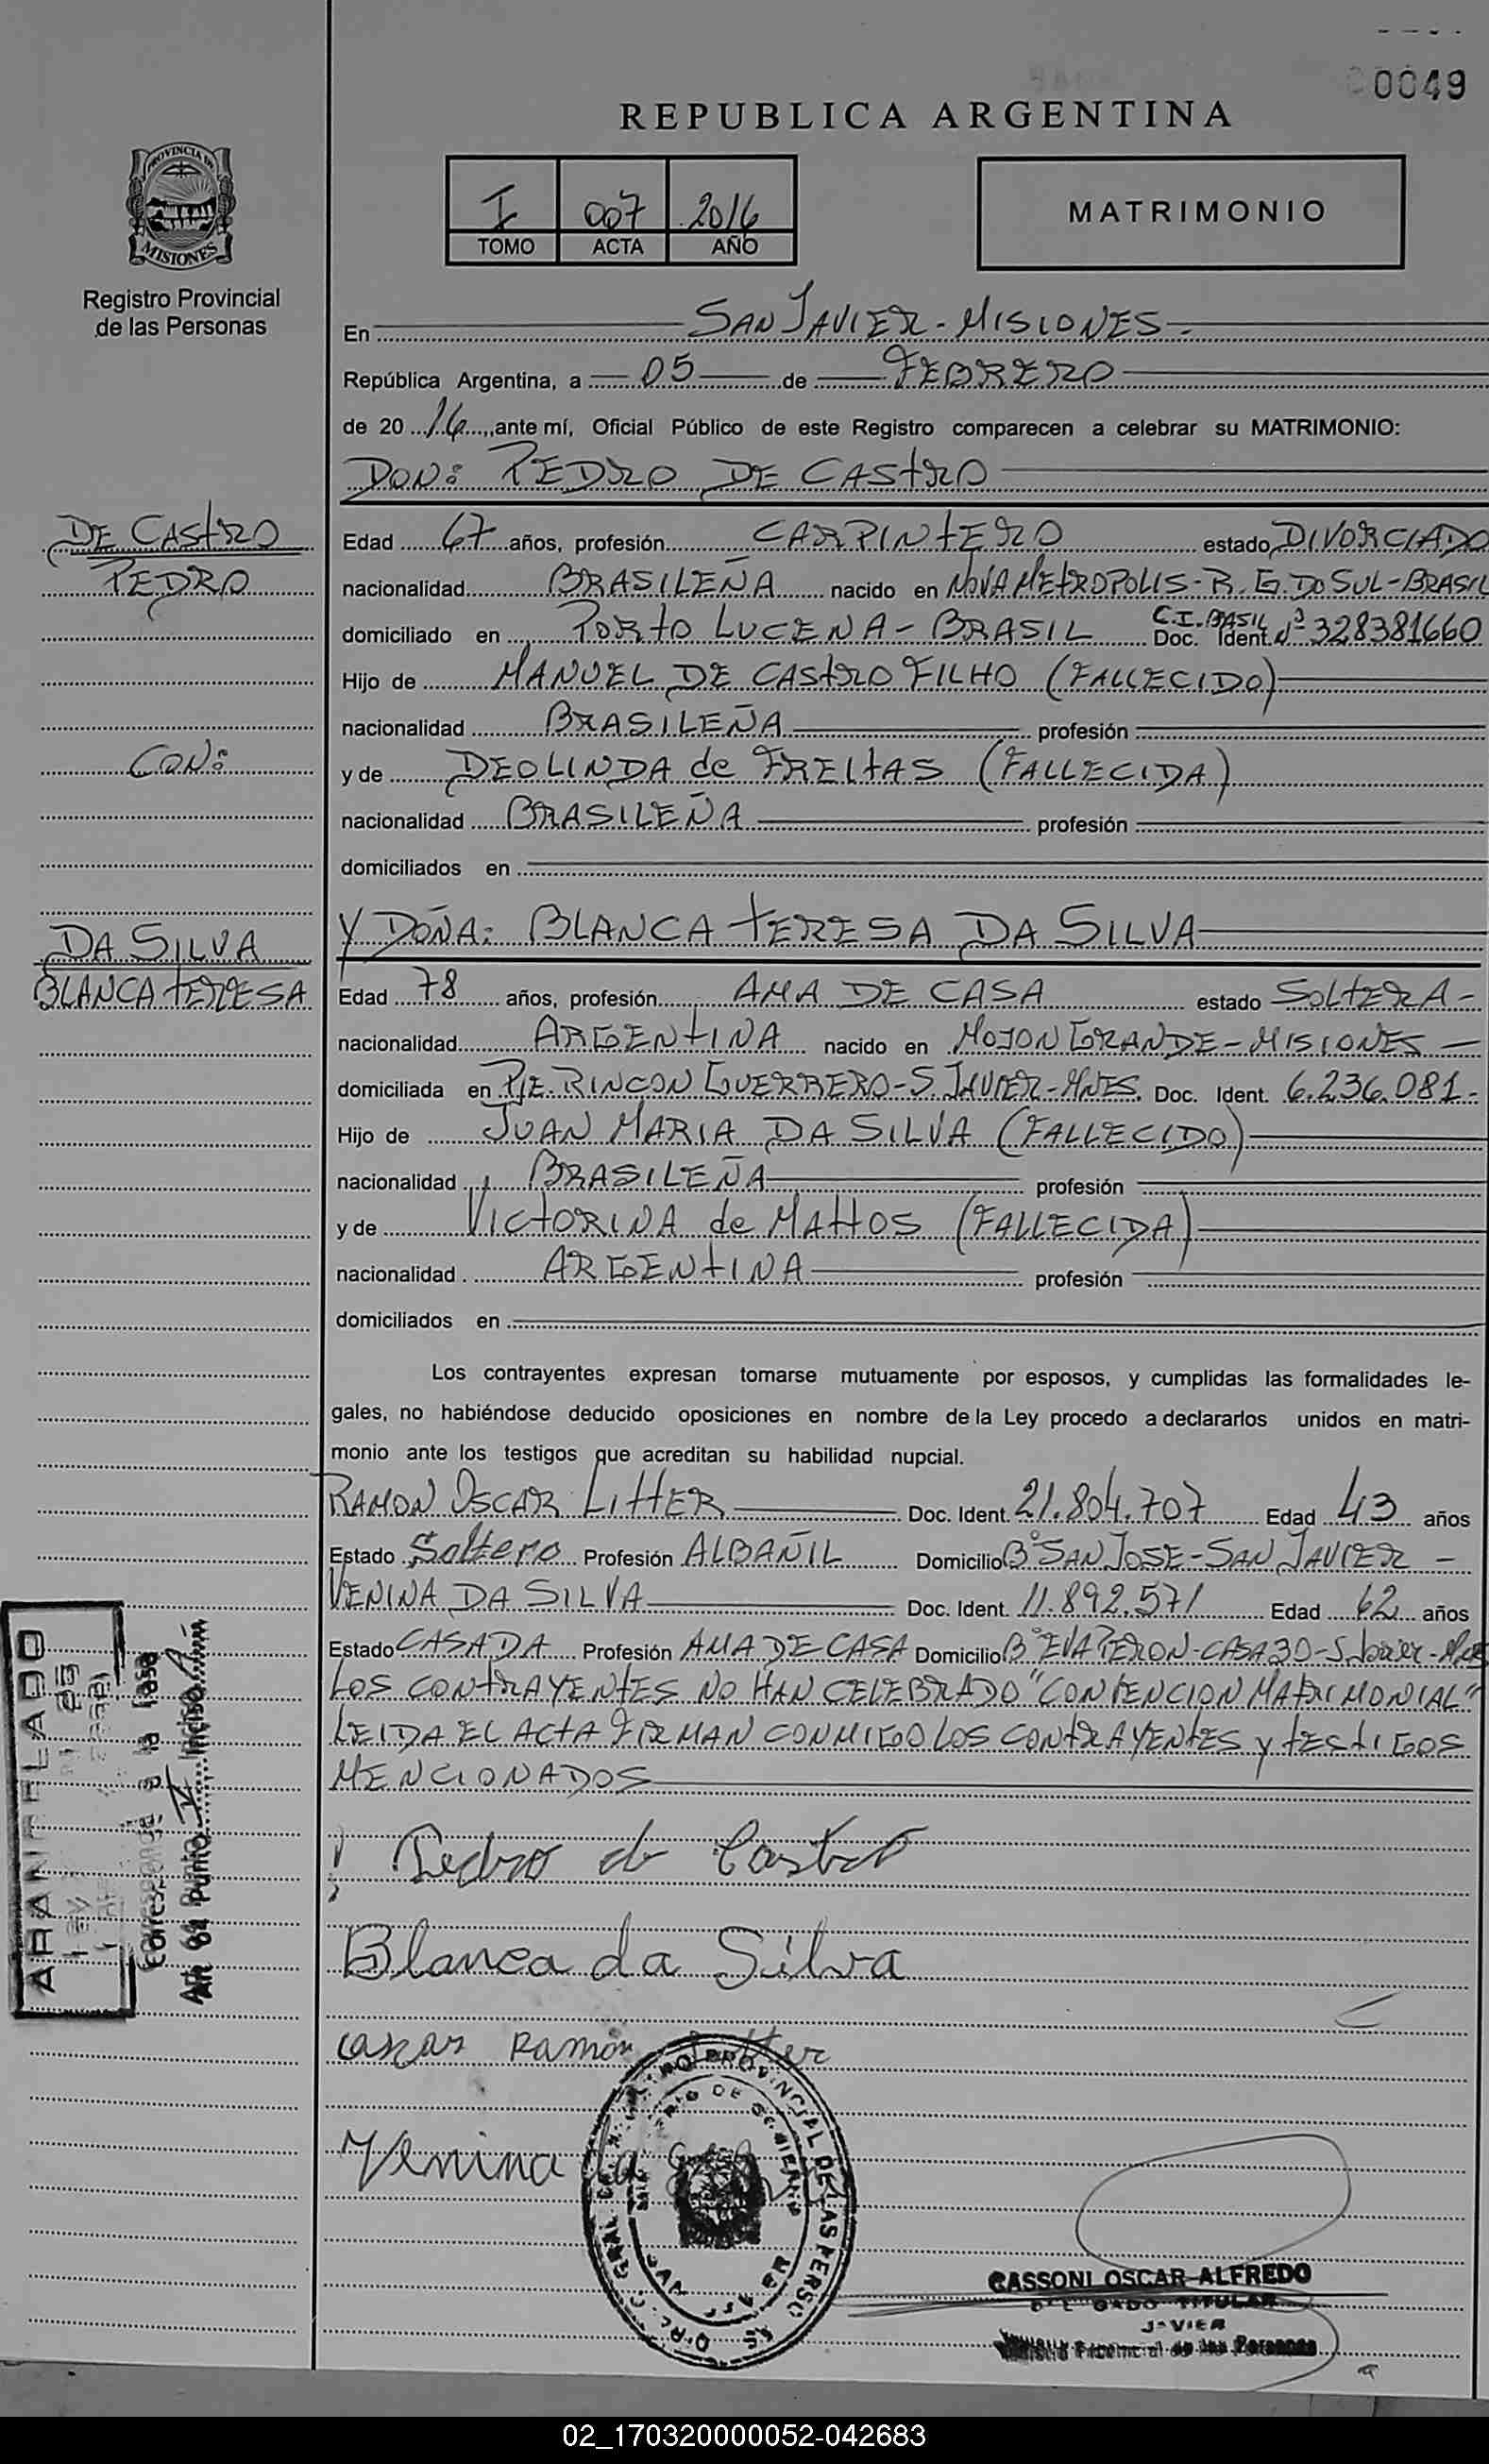 0049
REPUBLICA ARGENTINA
I 007 2016
TOMO ACTA AÑO
MATRIMONIO
PROVINCIA DE
MISIONES
Registro Provincial
de las Personas
En SAN JAVIER - MISIONES -
República Argentina, a 05 de FEBRERO
de 20 16, ante mí, Oficial Público de este Registro comparecen a celebrar su MATRIMONIO:
DON: PEDRO DE CASTRO
DE CASTRO
PEDRO
Edad 67 años, profesión CARPINTERO estado DIVORCIADO
nacionalidad BRASILEÑA nacido en NOVA METROPOLIS - R. G. DO SUL - BRASIL
domiciliado en PORTO LUCENA - BRASIL C.I. BASIL Doc. Ident. Nº 328381660
Hijo de MANUEL DE CASTRO FILHO (FALLECIDO)
nacionalidad BRASILEÑA profesión
CON:
y de DEOLINDA de FREITAS (FALLECIDA)
nacionalidad BRASILEÑA profesión
domiciliados en
Y DOÑA: BLANCA TERESA DA SILVA
DA SILVA
BLANCA TERESA
Edad 78 años, profesión AMA DE CASA estado SOLTERA -
nacionalidad ARGENTINA nacido en MOJON GRANDE - MISIONES -
domiciliada en PJE. RINCON GUERRERO - S. JAVIER - MNES. Doc. Ident. 6.236.081 -
Hijo de JUAN MARIA DA SILVA (FALLECIDO)
nacionalidad BRASILEÑA profesión
y de VICTORINA de MATTOS (FALLECIDA)
nacionalidad ARGENTINA profesión
domiciliados en
Los contrayentes expresan tomarse mutuamente por esposos, y cumplidas las formalidades le-
gales, no habiéndose deducido oposiciones en nombre de la Ley procedo a declararlos unidos en matri-
monio ante los testigos que acreditan su habilidad nupcial.
RAMON OSCAR LITTER Doc. Ident. 21.804.707 Edad 43 años
Estado Soltero Profesión ALBAÑIL Domicilio Bº SAN JOSE - SAN JAVIER -
VENINA DA SILVA Doc. Ident. 11.892.571 Edad 62 años
Estado CASADA Profesión AMA DE CASA Domicilio Bº EVA PERON - CASA 30 - S. Javier - Mnes
LOS CONTRAYENTES NO HAN CELEBRADO "CONVENCION MATRIMONIAL"
LEIDA EL ACTA FIRMAN CONMIGO LOS CONTRAYENTES y TESTIGOS
MENCIONADOS
ARANCELADO
Corresponde a la Tasa
Art. Punto V Inciso
Pedro de Castro
Blanca da Silva
Oscar Ramón Litter
Venina da
CASSONI OSCAR ALFREDO
TITULAR
JAVIER
Provincial de las Personas
02_170320000052-042683